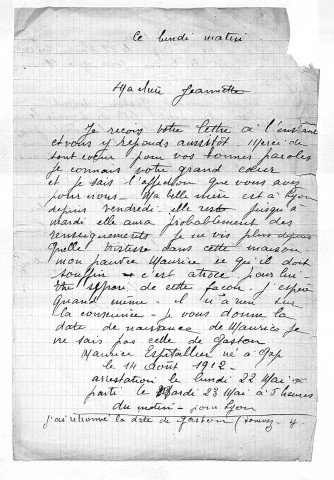 Ce lundi matin
Ma chère Jeannette
Je reçois votre lettre à l'instant
et vous y réponds aussitôt Merci de
tout cœur pour vos bonnes paroles
je connais votre grand cœur
et je sais l'affection que vous avez
pour nous - Ma belle mère est à Lyon
depuis vendredi elle reste jusqu'à
mardi elle aura probablement des
renseignements je ne vis plus depuis
quelle tristesse dans cette maison
mon pauvre Maurice ce qu'il doit
souffrir - c'est atroce pour lui
de cette façon j'espère
quand même - il n'a rien sur
la conscience - je vous donne la
date de naissance de Maurice je
ne sais pas celle de Gaston
Maurice Espitallier né à Gap
le 14 août 1912 -
arrestation le lundi 22 Mai
parti le Mardi 23 Mai à 5 heures
du matin - pour Lyon
j'ai retrouvé la date de Gaston (tournez